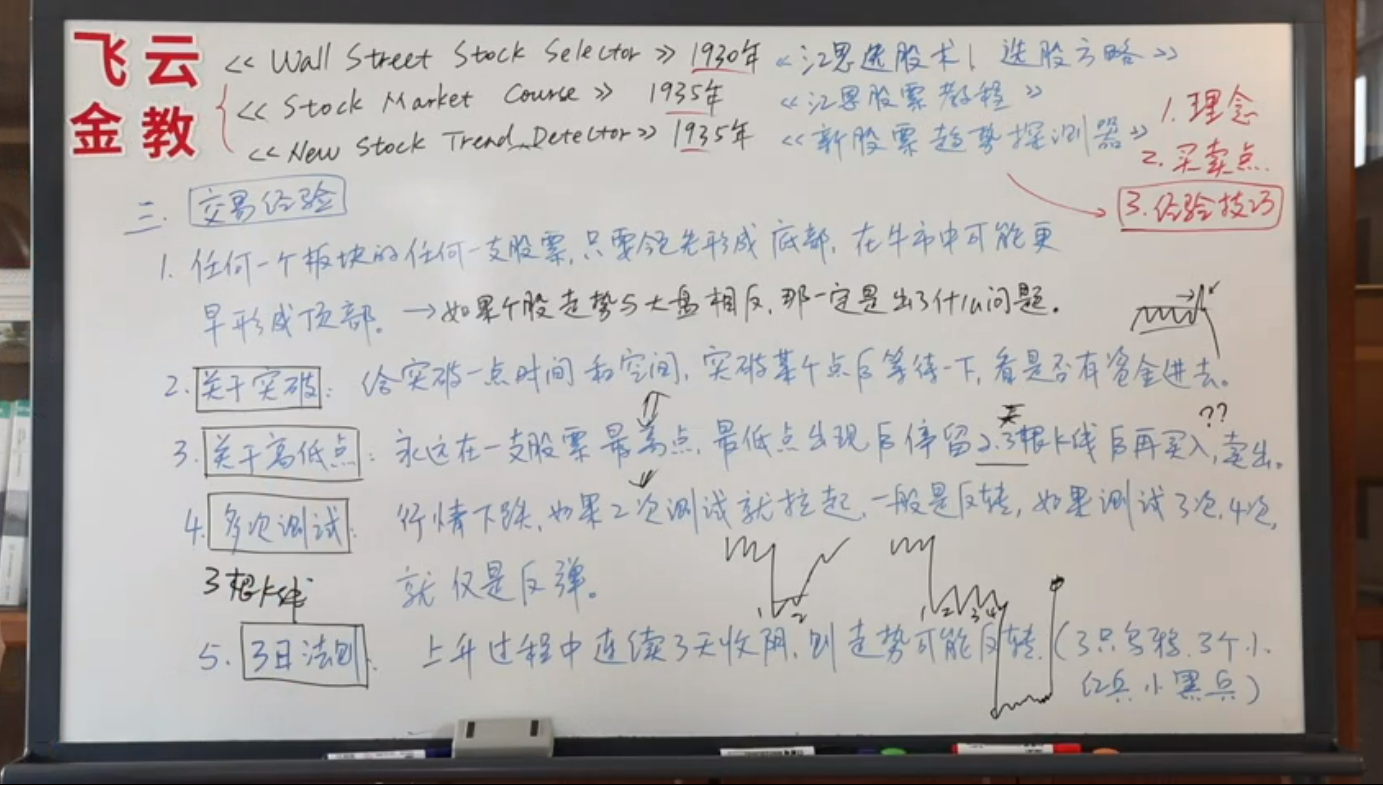 飞云
金教
<< Wall Street Stock Selector >> 1930年 《江恩选股术| 选股方略》
<< Stock Market Course >> 1935年 《江恩股票教程》
<< New Stock Trend Detector >> 1935年 《新股票趋势探测器》
1. 理念
2. 买卖点.
3. 经验技巧
三. 交易经验
1. 任何一个板块的任何一支股票,只要领先形成底部,在牛市中可能更
早形成顶部。→如果个股走势与大盘相反,那一定是出了什么问题.
2. 关于突破: 给突破一点时间和空间,突破某个点后等待一下,看是否有资金进去。
??
3. 关于高低点: 永远在一支股票最高点,最低点出现后停留2.3根K线后再买入,卖出。
4. 多次测试: 行情下跌,如果2次测试就拉起,一般是反转,如果测试3次,4次,
就仅是反弹。
1 2
1 2 3 4
3根K线
5. 3日法则: 上升过程中连续3天收阴,则走势可能反转.(3只乌鸦.3个小
红兵小黑兵)